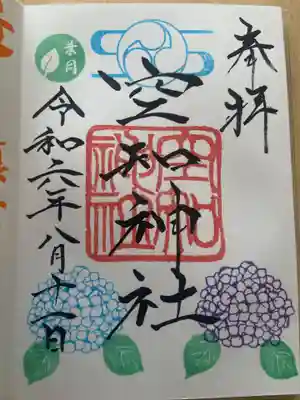 奉拝
空知神社
葉月
令和六年八月十一日
空知
神社